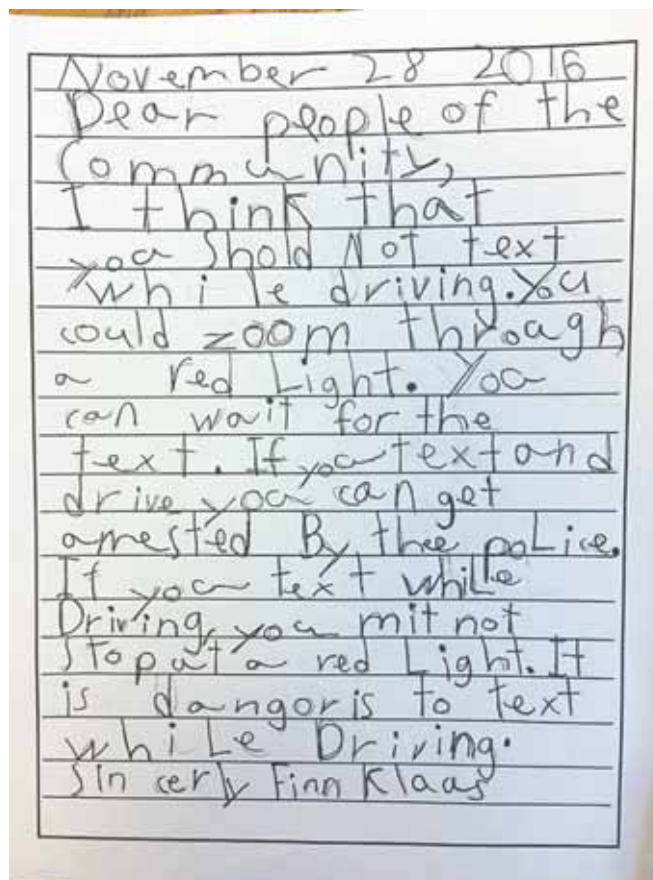 November 28 2016
Dear people of the
Community,
I think that
you Shold Not text
while driving. You
could zoom through
a red Light. You
can wait for the
text. If you text and
drive you can get
arrested By thee poLice.
If you text whiLe
Driving, you mit not
Stop at a red Light. It
is dangoris to text
whiLe Driving.
Sincerly Finn Klaas